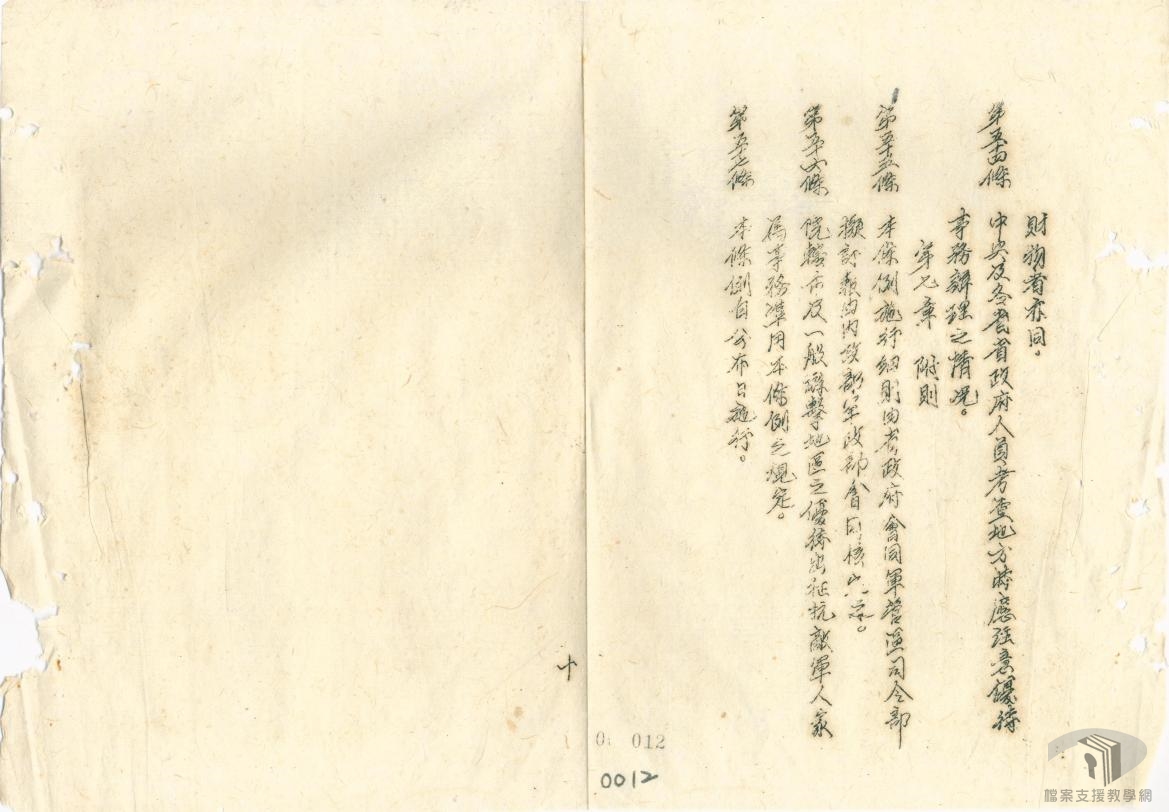 財物者亦同。
第五十四條 中央及各省省政府人員考查地方時應注意優待
事務辦理之情況。
第七章 附則
第五十五條 本條例施行細則由省政府會同軍管區司令部
擬訂報由內政部軍政部會同核定。
第五十六條 院轄市及一般游擊地區之優待出征抗敵軍人家
屬事務準用本條例之規定。
第五十七條 本條例自公布日施行。
十
012
0012
檔案支援教學網